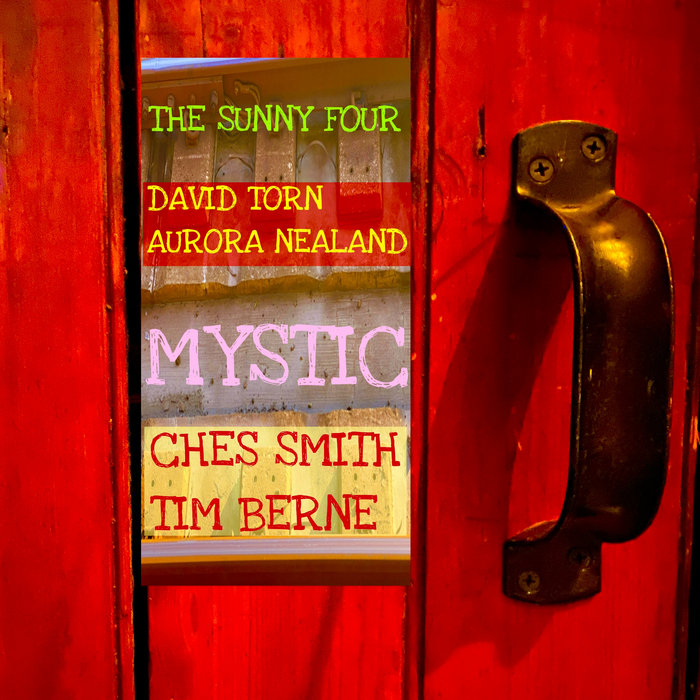 THE SUNNY FOUR
DAVID TORN
AURORA NEALAND
MYSTIC
CHES SMITH
TIM BERNE